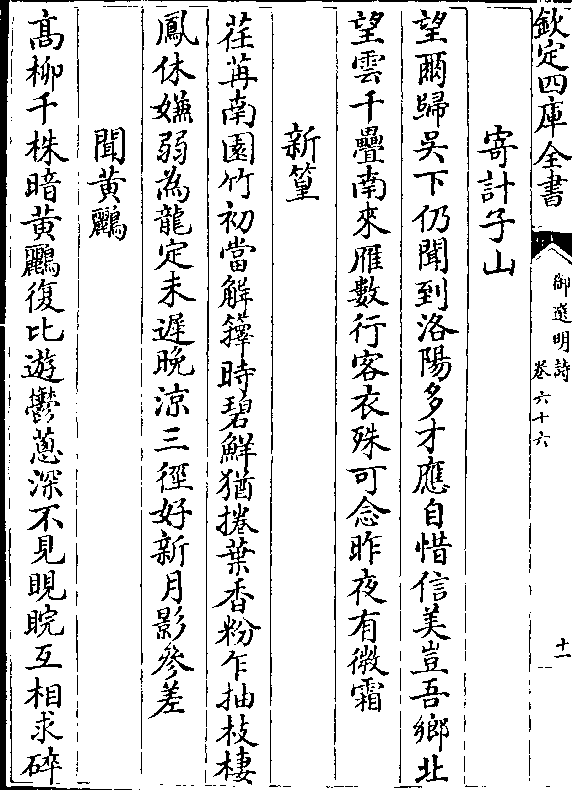 欽定四庫全書
御選明詩
卷六十六
十一
寄計子山
望爾歸吳下仍聞到洛陽多才應自惜信美豈吾鄉北
望雲千疊南來雁數行客衣殊可念昨夜有微霜
新篁
荏苒南園竹初當解籜時碧鮮猶捲葉香粉乍抽枝棲
鳳休嫌弱為龍定未遲晚涼三徑好新月影參差
聞黃鸝
高柳千株暗黃鸝復比遊鬱蔥深不見睍睆互相求碎